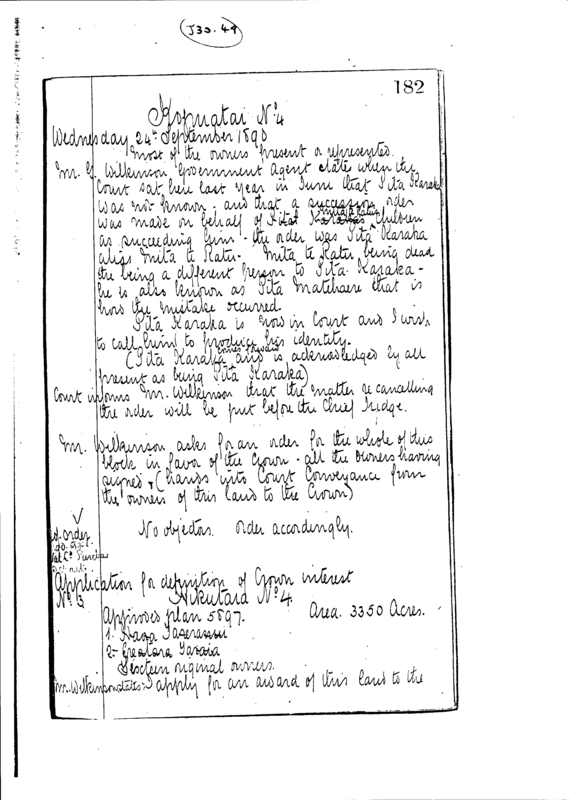 J30.49
182
Kopuatai No. 4
Wednesday 24th September 1890
most of the owners present or represented.
Mr. G. Wilkinson Government Agent states when the
Court sat here last year in June that Pita Karaka
was not known - and that a succession order
was made on behalf of Pita children
as succeeding him - the order was Pita Karaka
alias Mita te Ratu. Mita te Ratu being dead
he being a different person to Pita Karaka -
he is also known as Pita Matehaere that is
how the mistake occurred.
Pita Karaka is now in Court and I wish
to call him to produce his identity.
(Pita Karaka comes forward and is acknowledged by all
present as being Pita Karaka)
Court informs Mr. Wilkinson that the matter re cancelling
the order will be put before the Chief Judge.
Mr. Wilkinson asks for an order for the whole of this
block in favor of the Crown - all the owners having
signed, (hands into Court Conveyance from
the owners of this land to the Crown)
No objectors. Order accordingly.
order
Application for definition of Crown interest
No. 3
Hikutaia No. 4.
Approved plan 5897. Area. 3350 Acres.
1. Hana
2.
Sixteen original owners.
Mr. Wilkinson states:- I apply for an award of this land to the